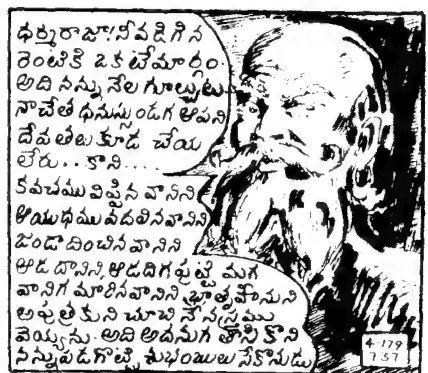 ధర్మరాజా! నీవడిగిన
రెంటికీ ఒకటే మార్గం.
అది నన్ను నేల గూల్చుట
నాచేత ధనుస్సుండగ ఆపని
దేవతలు కూడ చేయ
లేరు.. కాని....
కవచము విప్పిన వానిని
ఆయుధము వదలినవానిని
జండా దించిన వానిని
ఆడ దానిని, ఆడదిగ పుట్టి మగ
వానిగ మారినవానిని, భ్రాతృహీనుని
అపుత్రకుని చూచి నే నస్త్రము
వెయ్యను. అది అదనుగ తీసికొని
నన్ను పడగొట్టి శుభంబులు సేకొనుడు
4-179
737